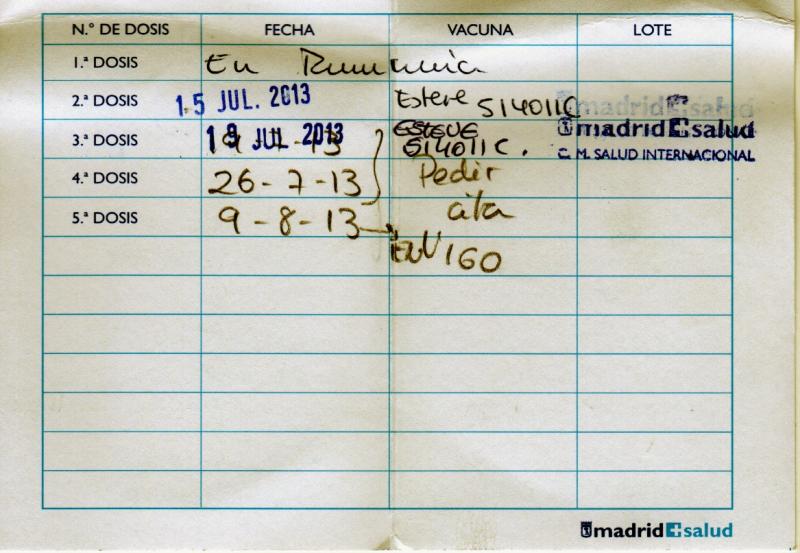 N.º DE DOSIS FECHA VACUNA LOTE
1.ª DOSIS En
2.ª DOSIS 15 JUL. 2013 Esteve S14011C madrid salud
3.ª DOSIS 19 JUL. 2013 19-7-13 ESTEVE S14011C. madrid salud
C. M. SALUD INTERNACIONAL
4.ª DOSIS 26-7-13 Pedir
5.ª DOSIS 9-8-13 cita
160
madrid salud